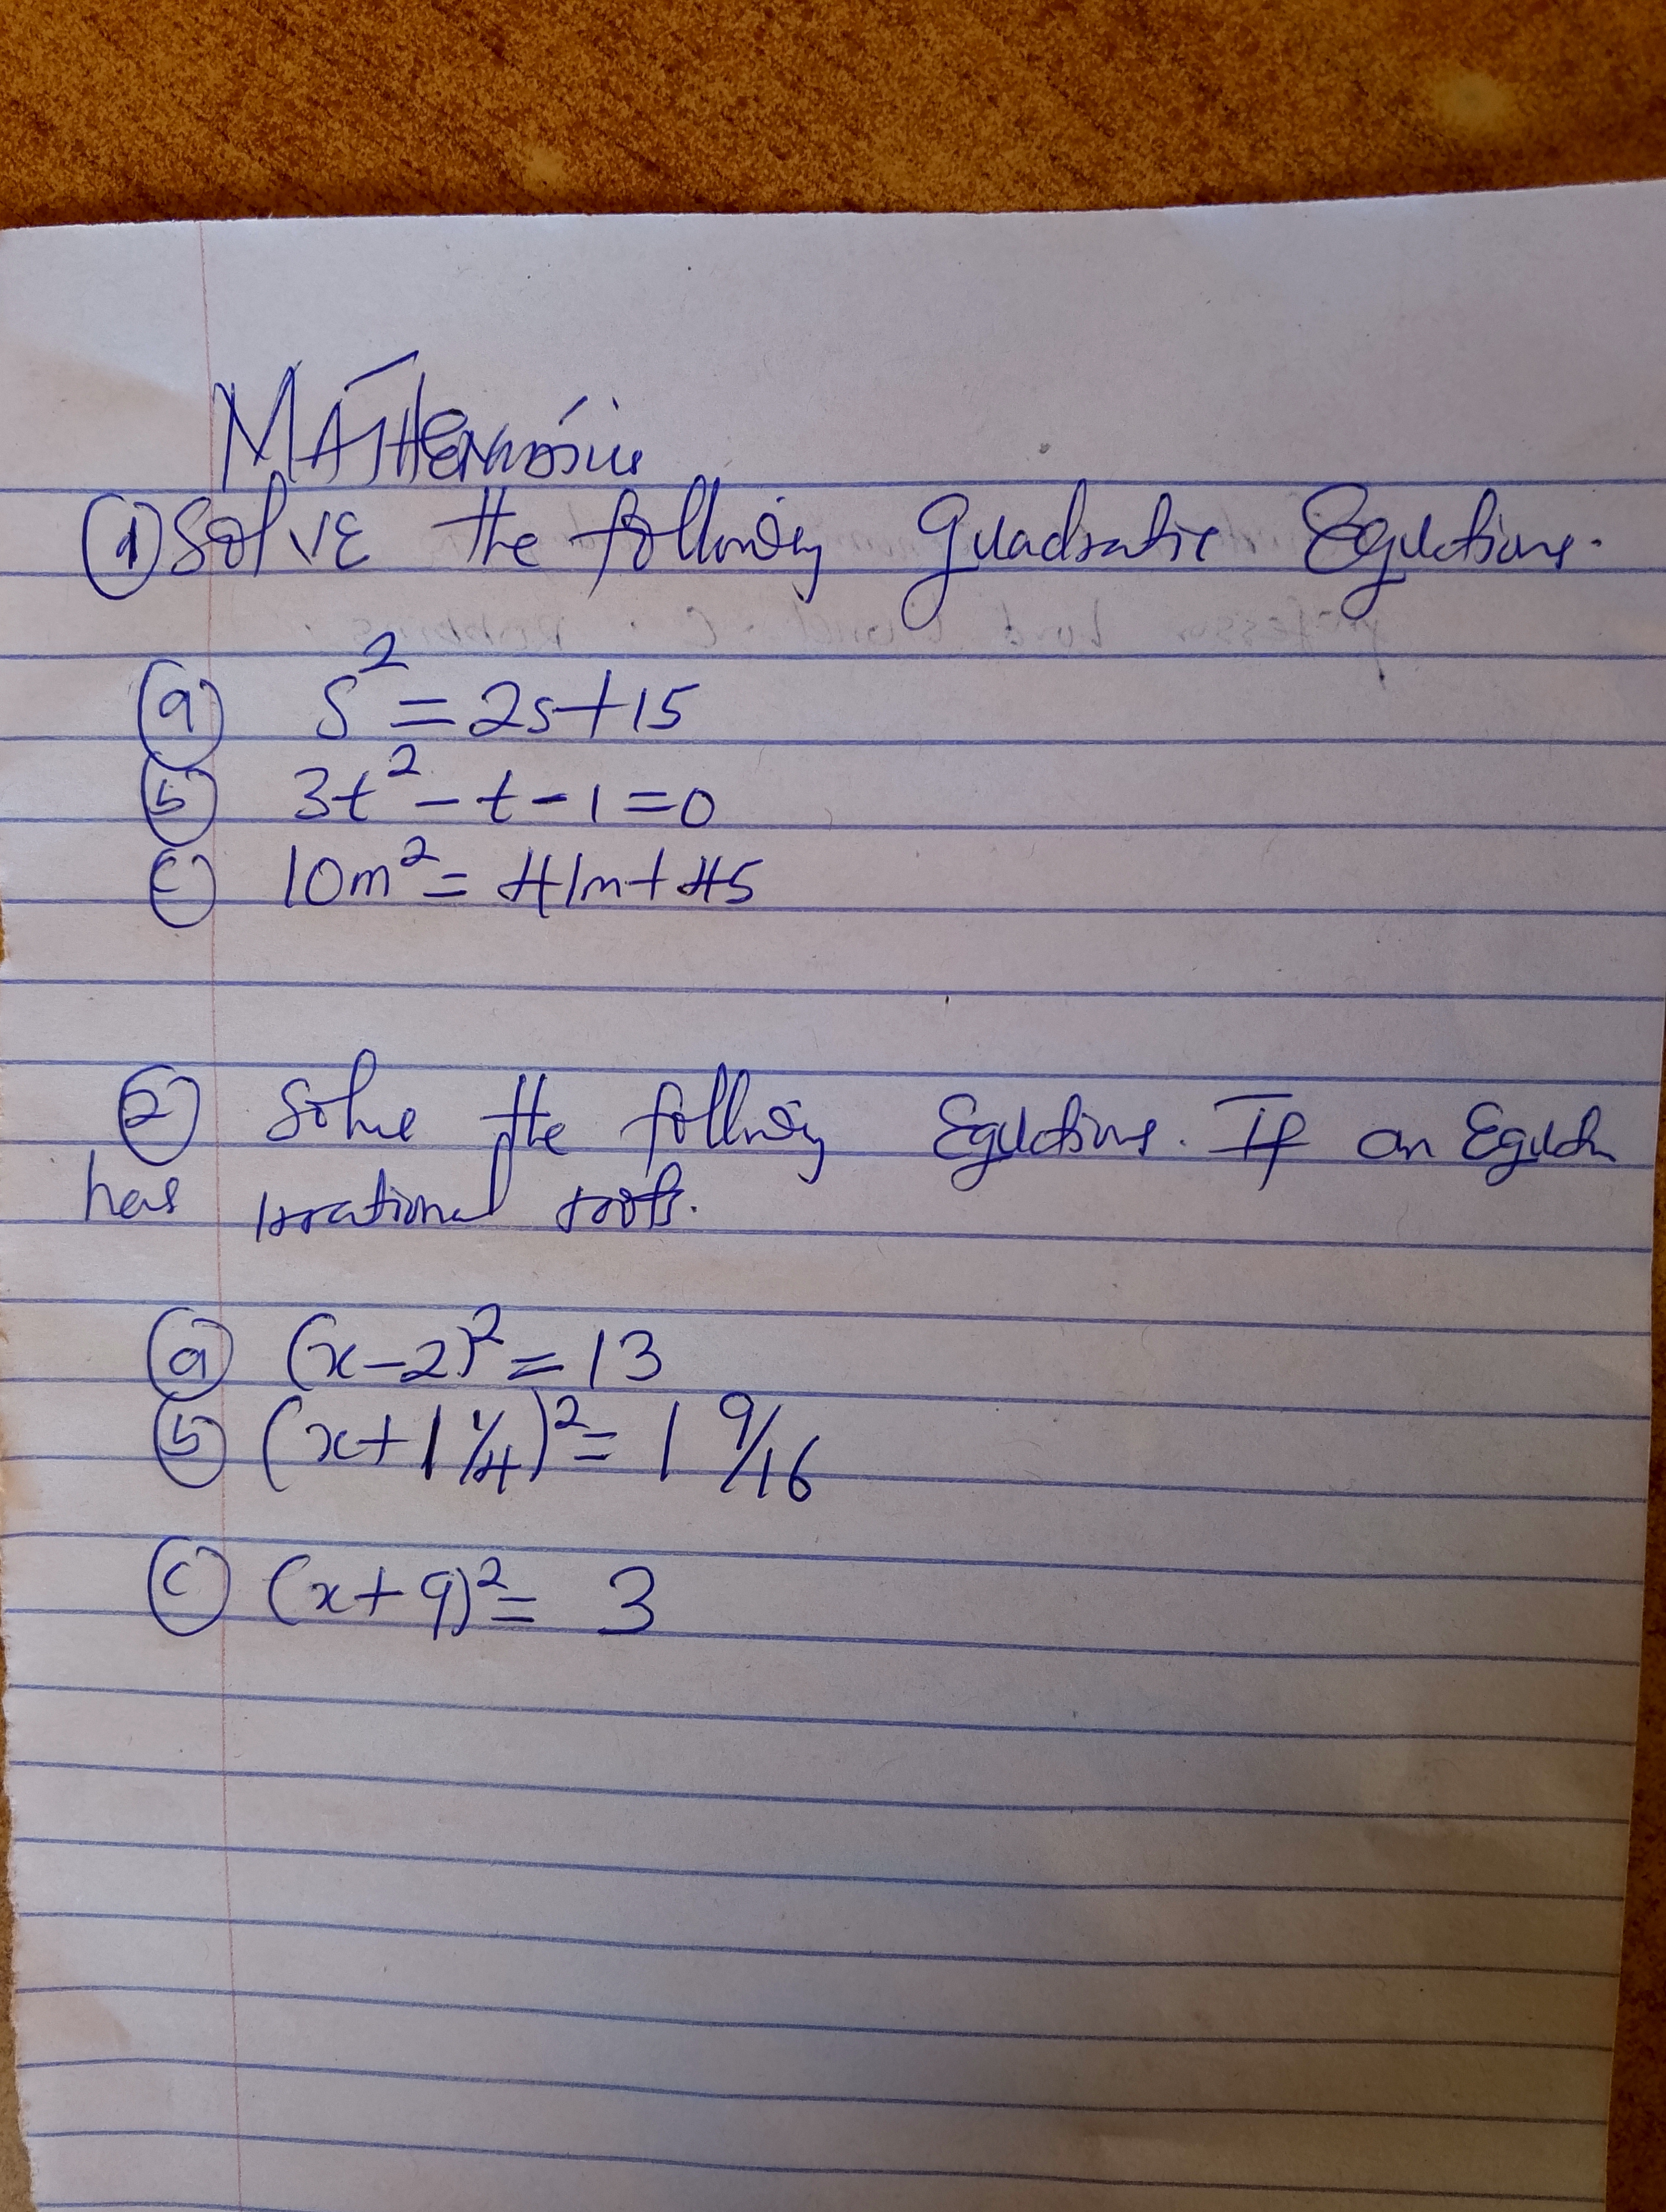 MATHEMATICS
① Solve the following Quadratic Equations.
ⓐ s² = 2s + 15
ⓑ 3t² - t - 1 = 0
ⓒ 10m² = 41m + 45
② Solve the following Equations. If an Equation
has irrational roots.
ⓐ (x - 2)² = 13
ⓑ (x + 1 1/4)² = 1 9/16
ⓒ (x + 9)² = 3